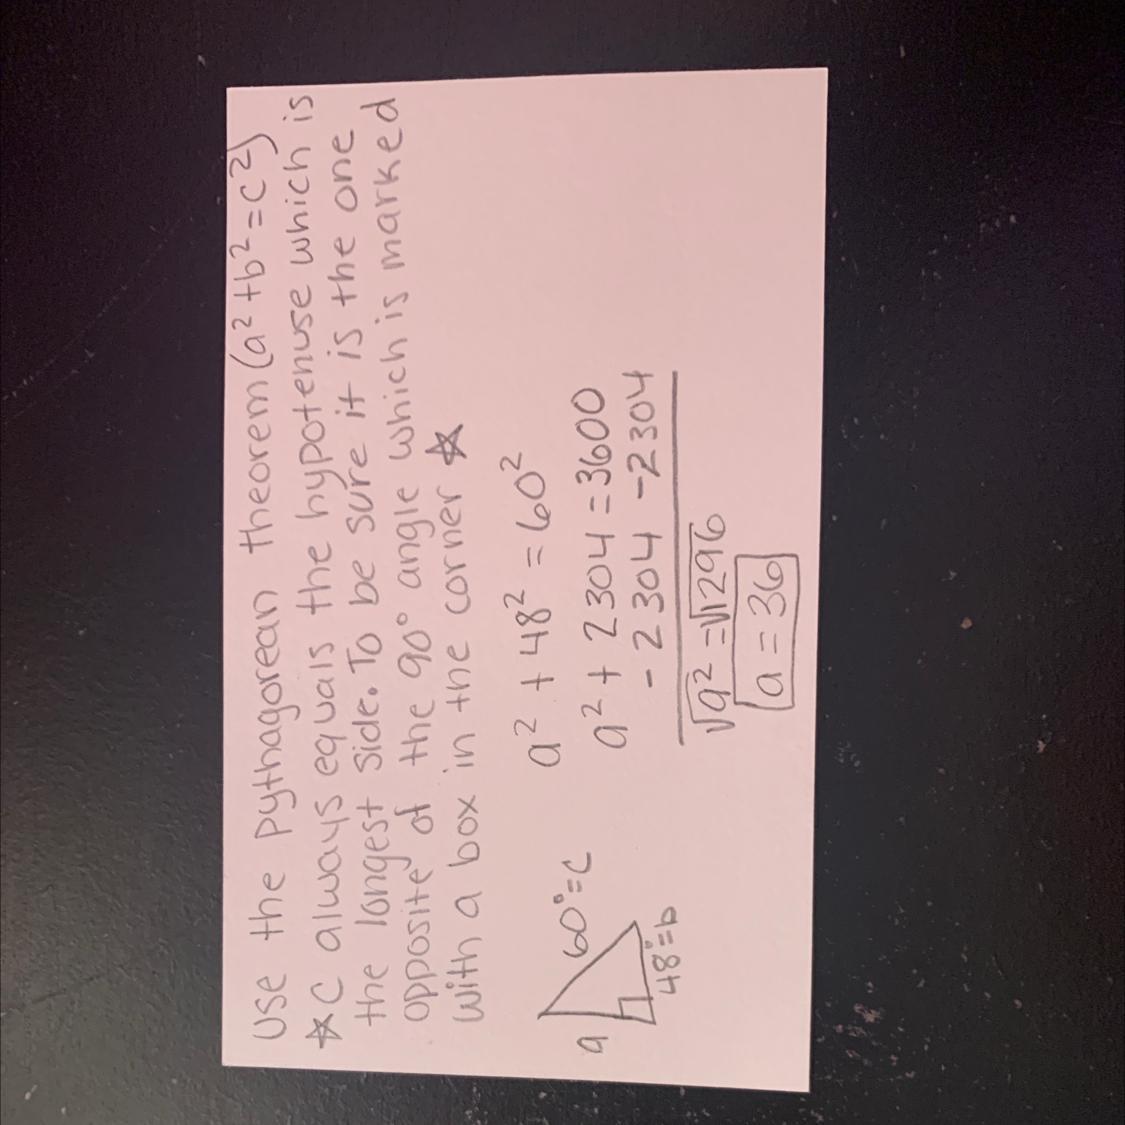 Use the pythagorean theorem (a²+b²=c²)
☆ C always equals the hypotenuse which is
the longest side. To be sure it is the one
opposite of the 90° angle which is marked
with a box in the corner ☆
a² + 48² = 60²
a² + 2304 = 3600
- 2304 -2304
√a² = √1296
a = 36
a
60°=c
48°=b